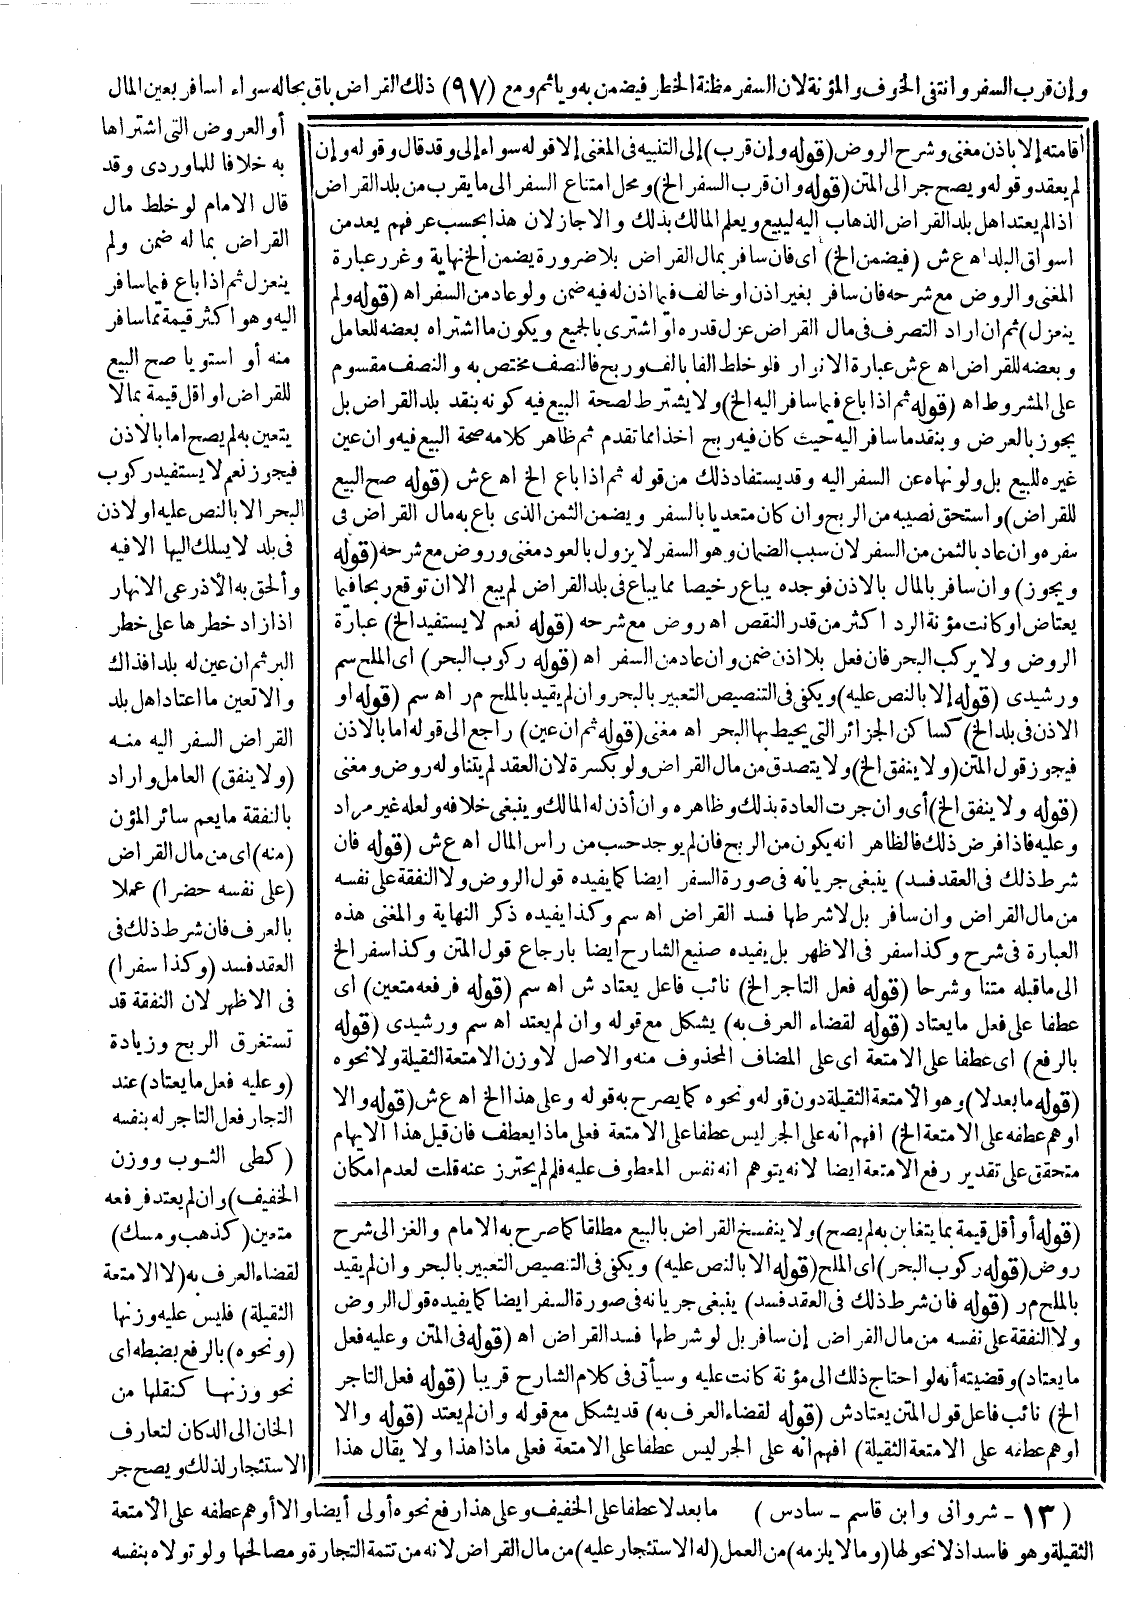 وإن قرب السفر وانتفى الخوف والمؤنة لان السفر مظنة الخطر فيضمن به ويأثم ومع (٩٧) ذلك القراض باق بحاله سواء اسافر بعين المال
أو العروض التي اشتراها
به خلافا للماوردى وقد
قال الامام لو خلط مال
القراض بما له ضمن ولم
ينعزل ثم اذا باع فيما سافر
اليه وهو اكثر قيمة مما سافر
منه أو استويا صح البيع
للقراض او اقل قيمة بما لا
يتغابن به لم يصح اما بالاذن
فيجوز نعم لا يستفيد ركوب
البحر الا بالنص عليه او لاذن
فى بلد لا يسلك اليها الا فيه
وألحق به الاذرعى الانهار
اذا زاد خطرها على خطر
البر ثم ان عين له بلد افذاك
والا تعين ما اعتاد اهل بلد
القراض السفر اليه منه
(ولا ينفق) العامل واراد
بالنفقة ما يعم سائر المؤن
(منه) اى من مال القراض
(على نفسه حضرا) عملا
بالعرف فان شرط ذلك فى
العقد فسد (وكذا سفرا)
فى الاظهر لان النفقة قد
تستغرق الربح وزيادة
(وعليه فعل ما يعتاد) عند
التجار فعل التاجر له بنفسه
(كطى الثوب ووزن
الخفيف) وان لم يعتد فرفعه
متعين (كذهب ومسك)
لقضاء العرف به (لا الامتعة
الثقيلة) فليس عليه وزنها
(ونحوه) بالرفع بضبطه اى
نحو وزنها كنقلها من
الخان الى الدكان لتعارف
الاستئجار لذلك ويصح جر
اقامته إلا باذن مغنى وشرح الروض (قوله وإن قرب) إلى التنبيه فى المغنى إلا قوله سواء إلى وقد قال وقوله وإن
لم يعقد وقوله ويصح جر الى المتن (قوله وان قرب السفر الخ) ومحل امتناع السفر الى ما يقرب من بلد القراض
اذا لم يعتد اهل بلد القراض الذهاب اليه ليبيع ويعلم المالك بذلك والا جاز لان هذا بحسب عرفهم يعد من
اسواق البلد اه ع ش (فيضمن الخ) أى فان سافر بمال القراض بلا ضرورة يضمن الخ نهاية وغرر عبارة
المغنى والروض مع شرحه فان سافر بغير اذن او خالف فيما اذن له فيه ضمن ولو عاد من السفر اه (قوله ولم
ينعزل) ثم ان اراد التصرف فى مال القراض عزل قدره او اشترى بالجميع ويكون ما اشتراه بعضه للعامل
وبعضه للقراض اه ع ش عبارة الانرار فلو خلط الفا بالف وربح فالنصف مختص به والنصف مقسوم
على المشروط اه (قوله ثم اذا باع فيما سافر اليه الخ) ولا يشترط لصحة البيع فيه كونه بنقد بلد القراض بل
يجوز بالعرض وبنقد ما سافر اليه حيث كان فيه ربح اخذا مما تقدم ثم ظاهر كلامه صحة البيع فيه وان عين
غيره للبيع بل ولو نهاه عن السفر اليه وقد يستفاد ذلك من قوله ثم اذا باع الخ اه ع ش (قوله صح البيع
للقراض) واستحق نصيبه من الربح وان كان متعديا بالسفر ويضمن الثمن الذى باع به مال القراض فى
سفره وان عاد بالثمن من السفر لان سبب الضمان وهو السفر لا يزول بالعود مغنى وروض مع شرحه (قوله
ويجوز) وان سافر بالمال بالاذن فوجده يباع رخيصا مما يباع فى بلد القراض لم يبع الا ان توقع ربحا فيما
يعتاض او كانت مؤنة الرد اكثر من قدر النقص اه روض مع شرحه (قوله نعم لا يستفيد الخ) عبارة
الروض ولا يركب البحر فان فعل بلا اذن ضمن وان عاد من السفر اه (قوله ركوب البحر) اى الملح سم
ورشيدى (قوله إلا بالنص عليه) ويكفى فى التنصيص التعبير بالبحر وان لم يقيد بالملح مر اه سم (قوله او
الاذن فى بلد الخ) كساكن الجزائر التى يحيط بها البحر اه مغنى (قوله ثم ان عين) راجع الى قوله اما بالاذن
فيجوز قول المتن (ولا ينفق الخ) ولا يتصدق من مال القراض ولو بكسرة لان العقد لم يتناوله روض ومغنى
(قوله ولا ينفق الخ) أى وان جرت العادة بذلك وظاهره وان أذن له المالك وينبغى خلافه ولعله غير مراد
وعليه فاذا فرض ذلك فالظاهر انه يكون من الربح فان لم يوجد حسب من راس المال اه ع ش (قوله فان
شرط ذلك فى العقد فسد) ينبغى جريانه فى صورة السفر ايضا كما يفيده قول الروض ولا النفقة على نفسه
من مال القراض وان سافر بل لا شرطها فسد القراض اه سم وكذا يفيده ذكر النهاية والمغنى هذه
العبارة فى شرح وكذا سفر فى الاظهر بل يفيده صنيع الشارح ايضا بارجاع قول المتن وكذا سفر الخ
الى ما قبله متنا وشرحا (قوله فعل التاجر الخ) نائب فاعل يعتاد ش اه سم (قوله فرفعه متعين) اى
عطفا على فعل ما يعتاد (قوله لقضاء العرف به) يشكل مع قوله وان لم يعتد اه سم ورشيدى (قوله
بالرفع) اى عطفا على الامتعة اى على المضاف المحذوف منه والاصل لا وزن الامتعة الثقيلة ولا نحوه
(قوله ما بعد لا) وهو الأمتعة الثقيلة دون قوله ونحوه كما يصرح به قوله وعلى هذا الخ اه ع ش (قوله والا
اوهم عطفه على الامتعة الخ) افهم انه على الجر ليس عطفا على الامتعة فعلى ماذا يعطف فان قيل هذا الايهام
متحقق على تقدير رفع الامتعة ايضا لانه يتوهم انه نفس المعطوف عليه فلم لم يحترز عنه قلت لعدم امكان
(قوله أو أقل قيمة بما يتغابن به لم يصح) ولا ينفسخ القراض بالبيع مطلقا كما صرح به الامام والغزالى شرح
روض (قوله ركوب البحر) اى الملح (قوله الا بالنص عليه) ويكفى فى التنصيص التعبير بالبحر وان لم يقيد
بالملح مر (قوله فان شرط ذلك فى العقد فسد) ينبغى جريانه فى صورة السفر ايضا كما يفيده قول الروض
ولا النفقة على نفسه من مال القراض إن سافر بل لو شرطها فسد القراض اه (قوله فى المتن وعليه فعل
ما يعتاد) وقضيته أنه لو احتاج ذلك الى مؤنة كانت عليه وسيأتى فى كلام الشارح قريبا (قوله فعل التاجر
الخ) نائب فاعل قول المتن يعتاد ش (قوله لقضاء العرف به) قد يشكل مع قوله وان لم يعتد (قوله والا
اوهم عطفه على الامتعة الثقيلة) افهم انه على الجر ليس عطفا على الامتعة فعلى ماذا هذا ولا يقال هذا
(١٣ - شروانى وابن قاسم - سادس) ما بعد لا عطفا على الخفيف وعلى هذا رفع نحوه أولى أيضا والا أوهم عطفه على الأمتعة
الثقيلة وهو فاسد اذ لا نحو لها (وما لا يلزمه) من العمل (له الاستئجار عليه) من مال القراض لانه من تتمة التجارة ومصالحها ولو تولاه بنفسه